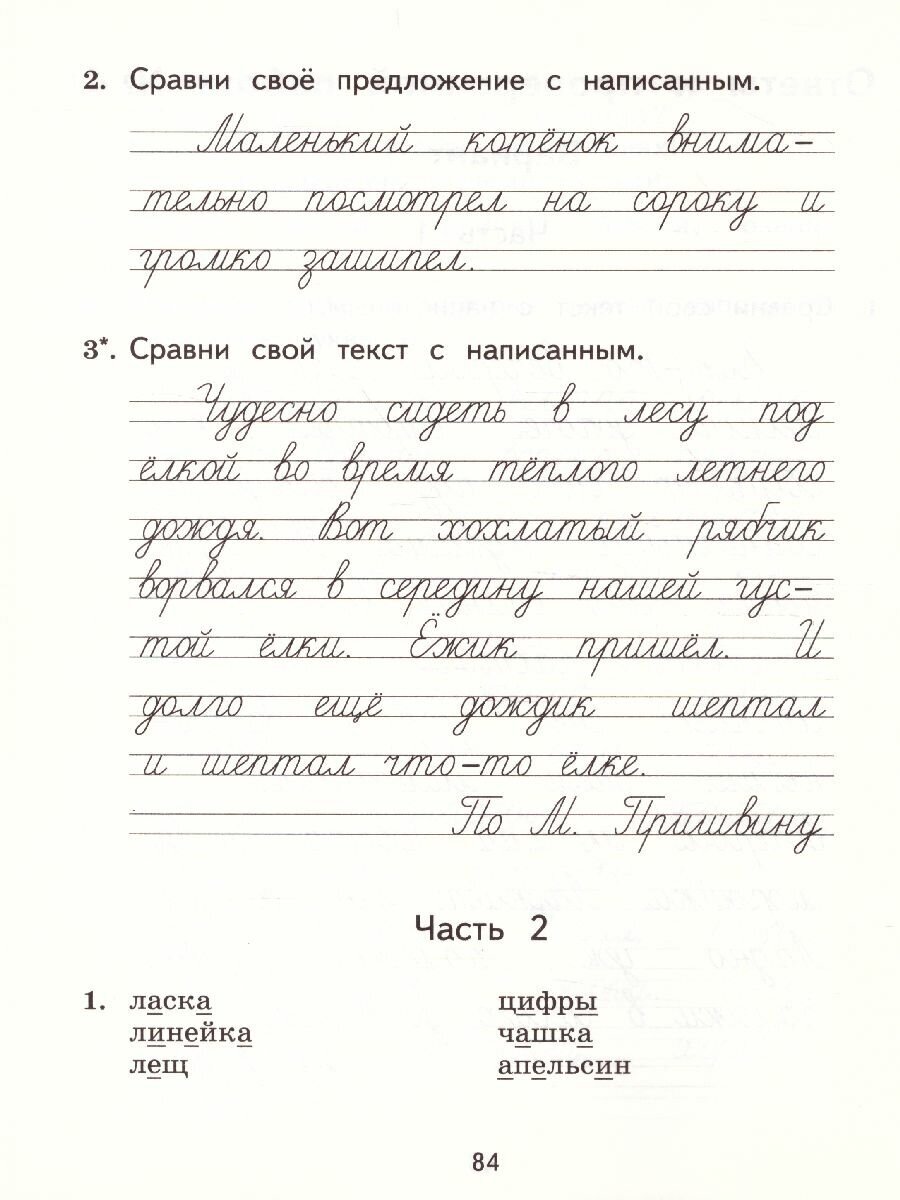 2. Сравни своё предложение с написанным.
Маленький котёнок внима-
тельно посмотрел на сороку и
громко зашипел.
3*. Сравни свой текст с написанным.
Чудесно сидеть в лесу под
ёлкой во время тёплого летнего
дождя. Вот хохлатый рябчик
ворвался в середину нашей гус-
той ёлки. Ёжик пришёл. И
долго ещё дождик шептал
и шептал что-то ёлке.
По М. Пришвину
Часть 2
1. ласка цифры
линейка чашка
лещ апельсин
84